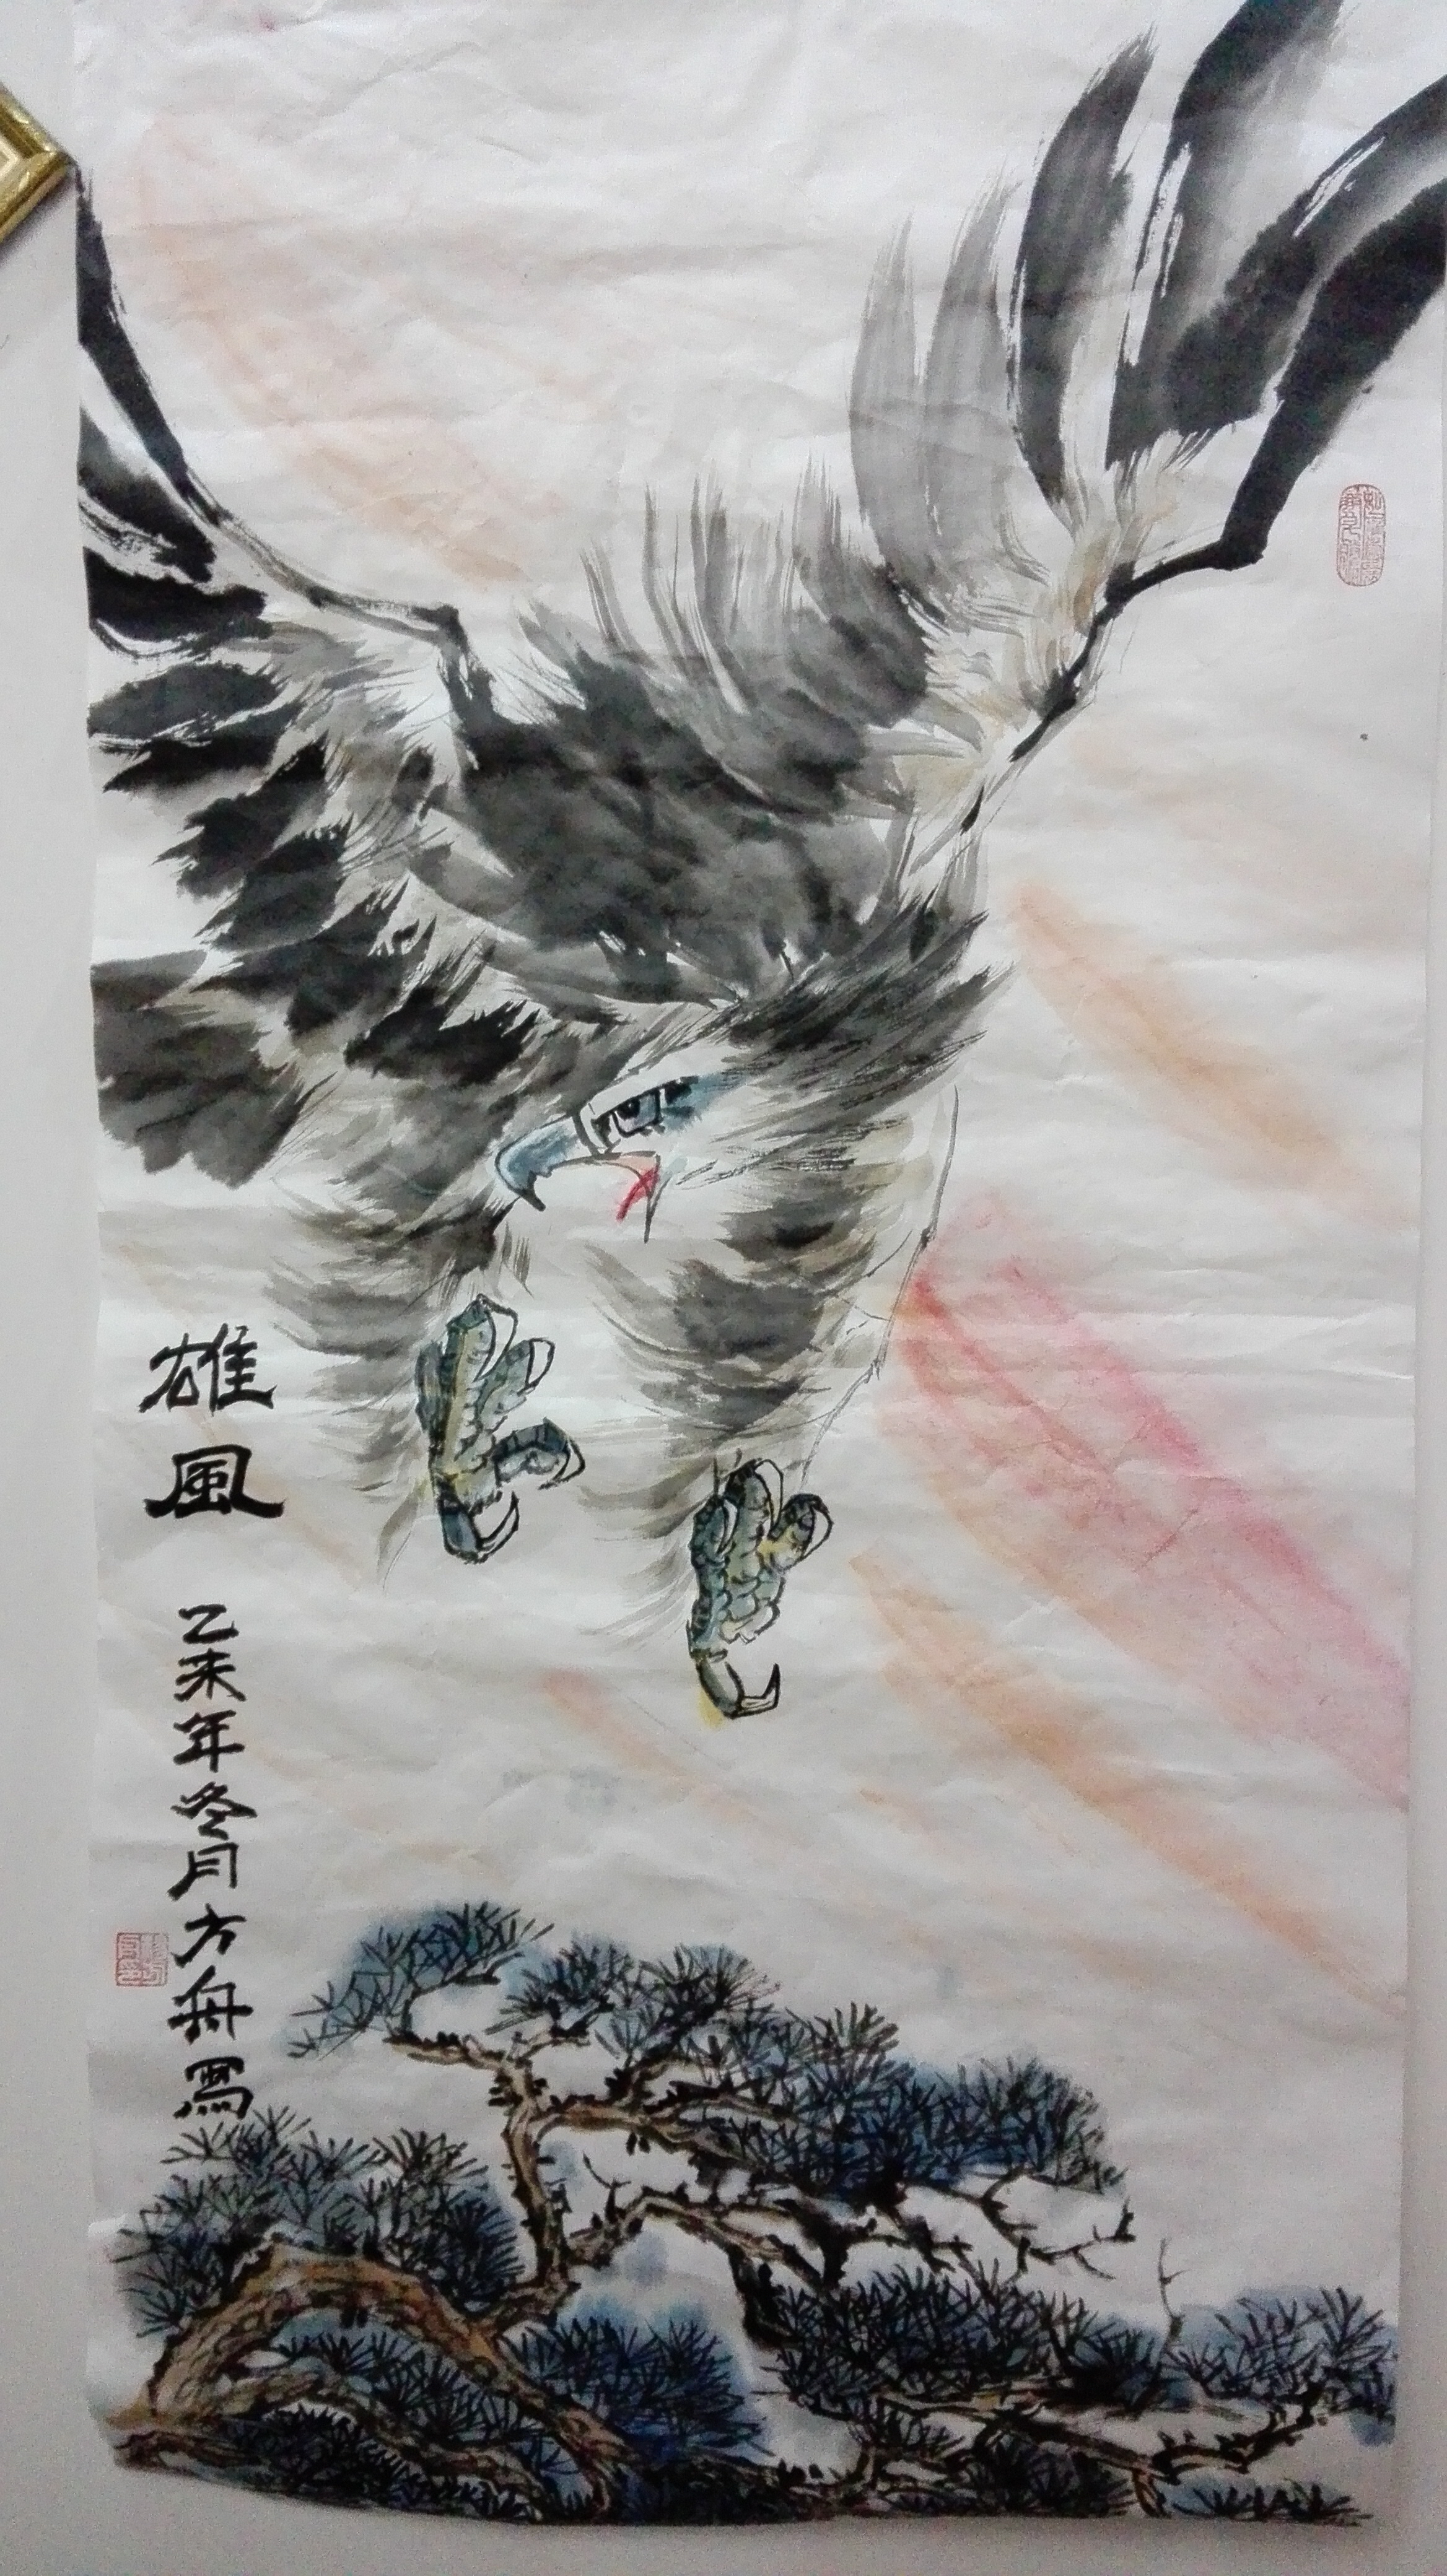 雄風
乙未年冬月方舟寫